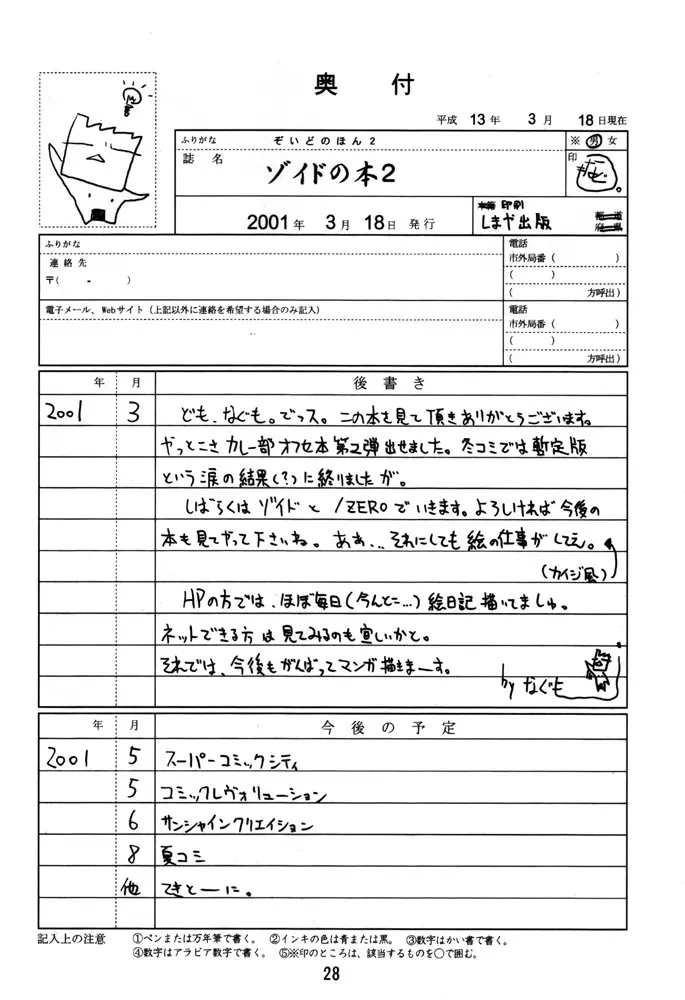 奥付
平成 13年 3月 18日現在
ふりがな ぞいどのほん2
誌名 ゾイドの本2
※ 男 女
印
2001年 3月 18日 発行
印刷
しまや出版
ふりがな
連絡先
〒( - )
電話
市外局番 ( )
( )
( 方呼出)
電子メール、Webサイト (上記以外に連絡を希望する場合のみ記入)
電話
市外局番 ( )
( )
( 方呼出)
年 月 後書き
2001 3 ども、なぐも。でっス。この本を見て頂きありがとうございます。
やっとこさ カレー部 オフセ本 第2弾 出せました。冬コミでは暫定版
という涙の結果(?)に終りましたが。
しばらくは ゾイド と /ZERO で いきます。よろしければ 今後の
本も見てやって下さいね。 ああ... それにしても 絵の仕事が してえ。
(カイジ風)
HPの方では、ほぼ毎日(今んとこ...) 絵日記 描いてましゅ。
ネットできる方は見てみるのも宜しいかと。
それでは、今後もがんばってマンガ描きまーす。
by なぐも
年 月 今後の予定
2001 5 スーパーコミックシティ
5 コミックレヴォリューション
6 サンシャインクリエイション
8 夏コミ
他 てきとーに。
記入上の注意 ①ペンまたは万年筆で書く。 ②インキの色は青または黒。 ③数字はかい書で書く。
④数字はアラビア数字で書く。 ⑤※印のところは、該当するものを○で囲む。
28